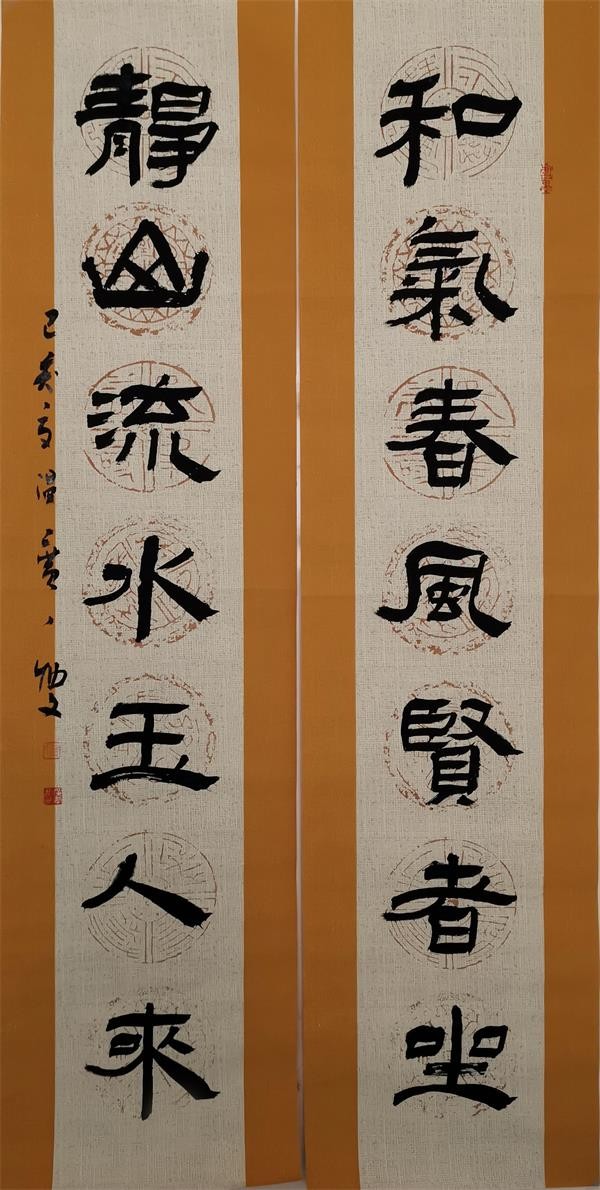 和氣春風賢者坐
靜山流水玉人來
己亥